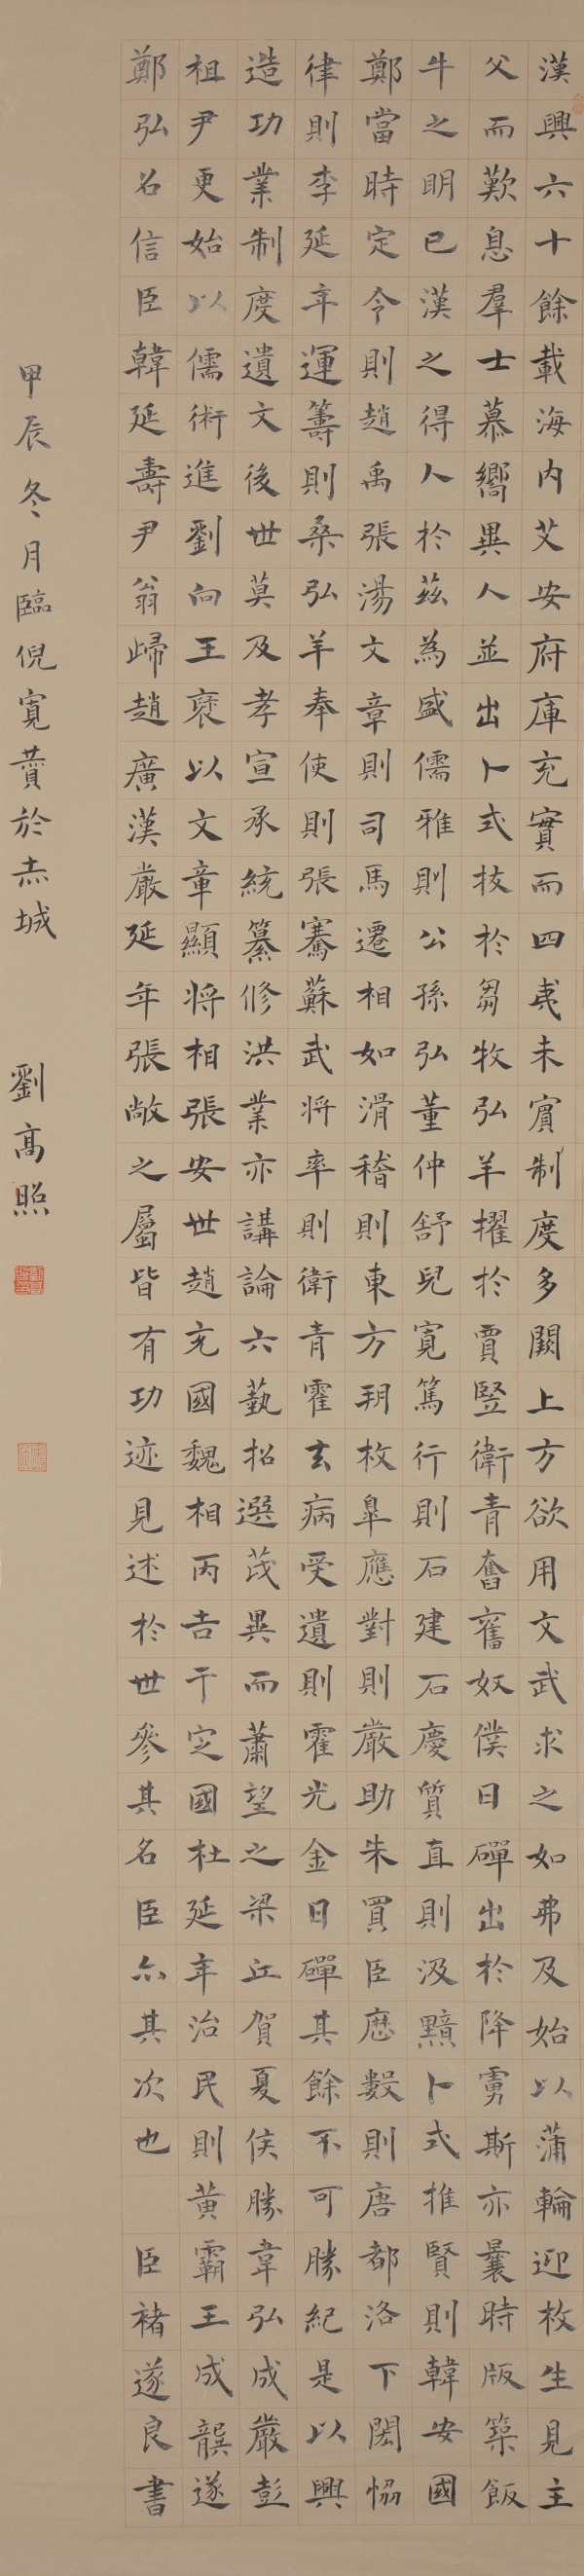 漢興六十餘載海内艾安府庫充實而四夷未賓制度多闕上方欲用文武求之如弗及始以蒲輪迎枚生見主
父而歎息羣士慕嚮異人並出卜式拔於芻牧弘羊擢於賈豎衛青奮舊奴僕日磾出於降虜斯亦曩時版築飯
牛之明已漢之得人於茲為盛儒雅則公孫弘董仲舒兒寬篤行則石建石慶質直則汲黯卜式推賢則韓安國
鄭當時定令則趙禹張湯文章則司馬遷相如滑稽則東方朔枚臯應對則嚴助朱買臣歷數則唐都洛下閎恊
律則李延年運籌則桑弘羊奉使則張騫蘇武將率則衛青霍玄病受遺則霍光金日磾其餘不可勝紀是以興
造功業制度遺文後世莫及孝宣承統纂修洪業亦講論六藝招選茂異而蕭望之梁丘賀夏侯勝韋弘成嚴彭
祖尹更始以儒術進劉向王褒以文章顯將相張安世趙充國魏相丙吉于定國杜延年治民則黃霸王成龔遂
鄭弘召信臣韓延壽尹翁歸趙廣漢嚴延年張敞之屬皆有功迹見述於世參其名臣亦其次也 臣褚遂良書
甲辰冬月臨倪寬贊於赤城 劉高照